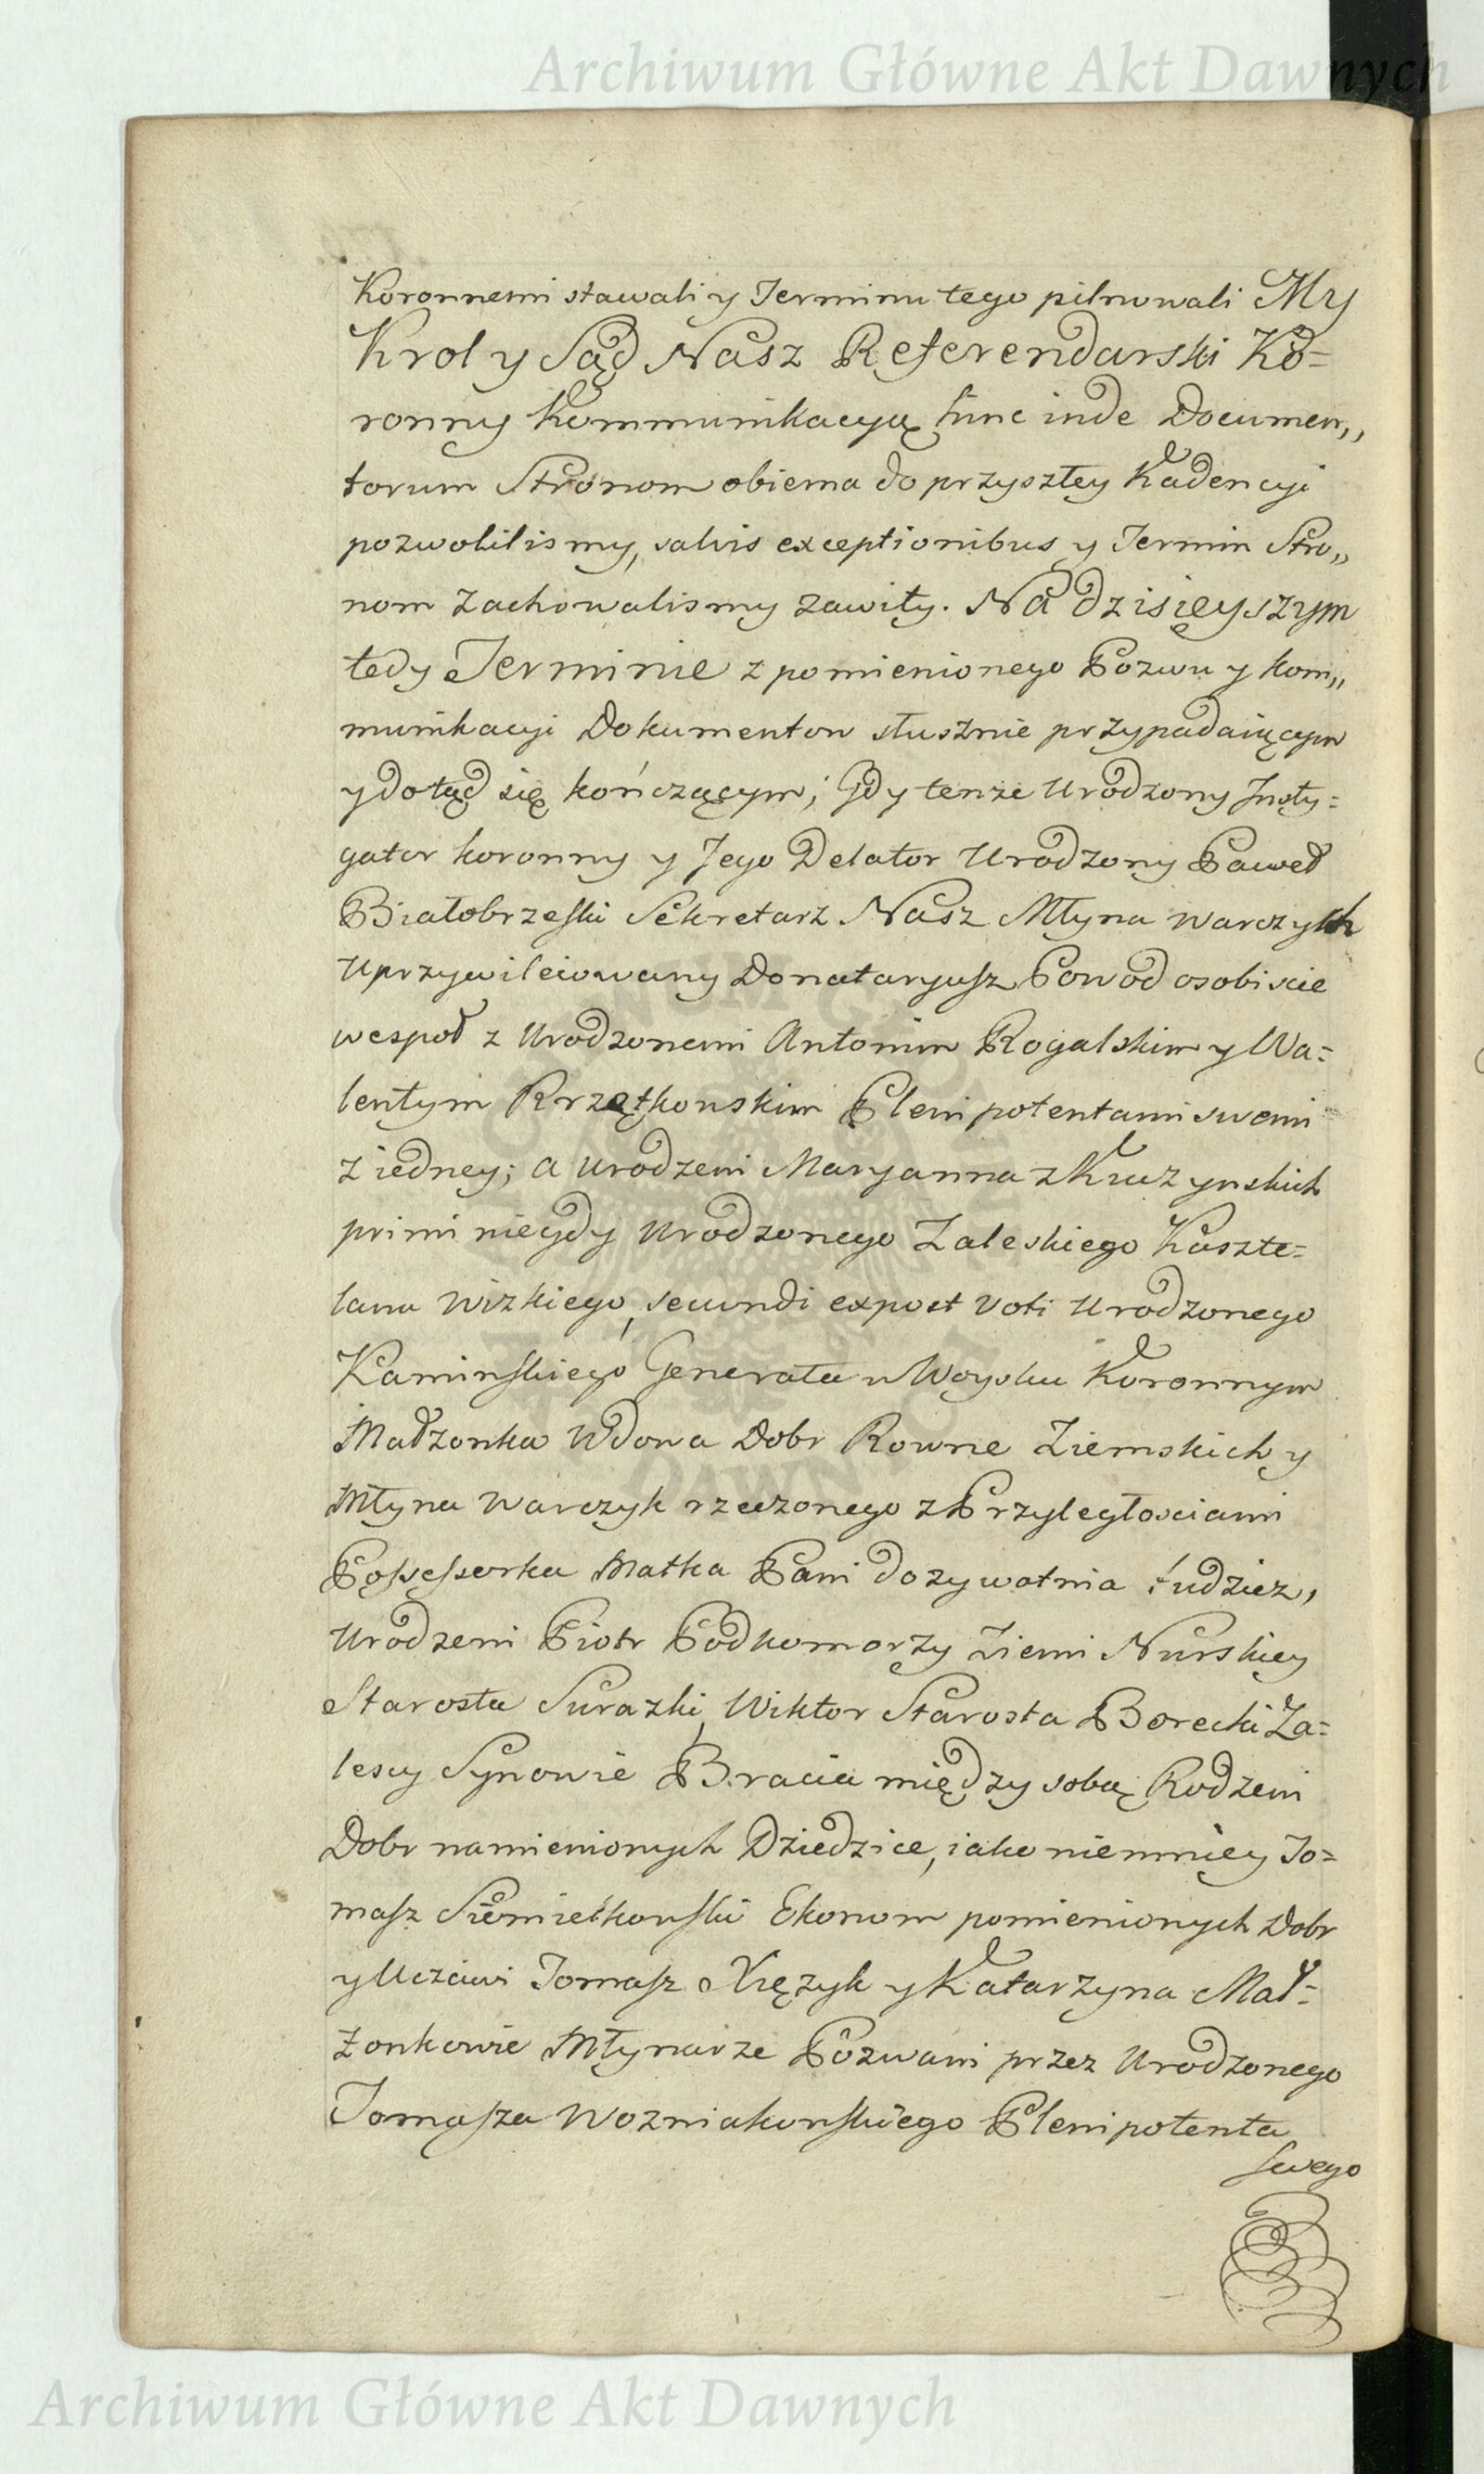 Archiwum Główne Akt Dawnych
Koronnemi stawali y Terminu tego pilnowali My
Krol y Sąd Nasz Referendarski Ko=
ronny Kommunikacyą hinc inde Documen„
torum Stronom obiema do przyszłey Kadencyi
pozwolilismy, salvis exceptionibus y Termin Stro„
nom zachowalismy zawity. Na dzisięyszym
tedy Terminie z pomienionego Pozwu y kom„
munikacyi Dokumentow słusznie przypadaiącym
y dotąd się kończącym; Gdy tenze Urodzony Insty=
gator koronny y Jego Delator Urodzony Paweł
Białobrzeski Sekretarz Nasz Młyna Warczyk
Uprzywileiowany Donataryusz Powod osobiscie
wespoł z Urodzonemi Antonim Rogalskim y Wa=
lentym Rrzątkowskim Plenipotentami swemi
z iedney; a Urodzeni Maryanna z Kruszynskich
primi niegdy Urodzonego Zaleskiego Kaszte=
lana Wizkiego, secundi expost voti Urodzonego
Kaminskiego Generała w Woysku Koronnym
Małzonka Wdowa Dobr Rowne Ziemskich y
Młyna Warczyk rzeczonego z Przyległosciami
Possessorka Matka Pani dozywotnia tudziez,
Urodzeni Piotr Podkomorzy Ziemi Nurskiey
Starosta Surazki, Wiktor Starosta Borecki Za=
lescy Synowie Bracia między sobą Rodzeni
Dobr namienionych Dziedzice, iako niemniey To=
masz Siemiełkowski Ekonom pomienionych Dobr
y Uczciwi Tomasz Xiężyk y Katarzyna Mał=
żonkowie Młynarze Pozwani przez Urodzonego
Tomasza Wozniakowskiego Plenipotenta
swego
Archiwum Główne Akt Dawnych